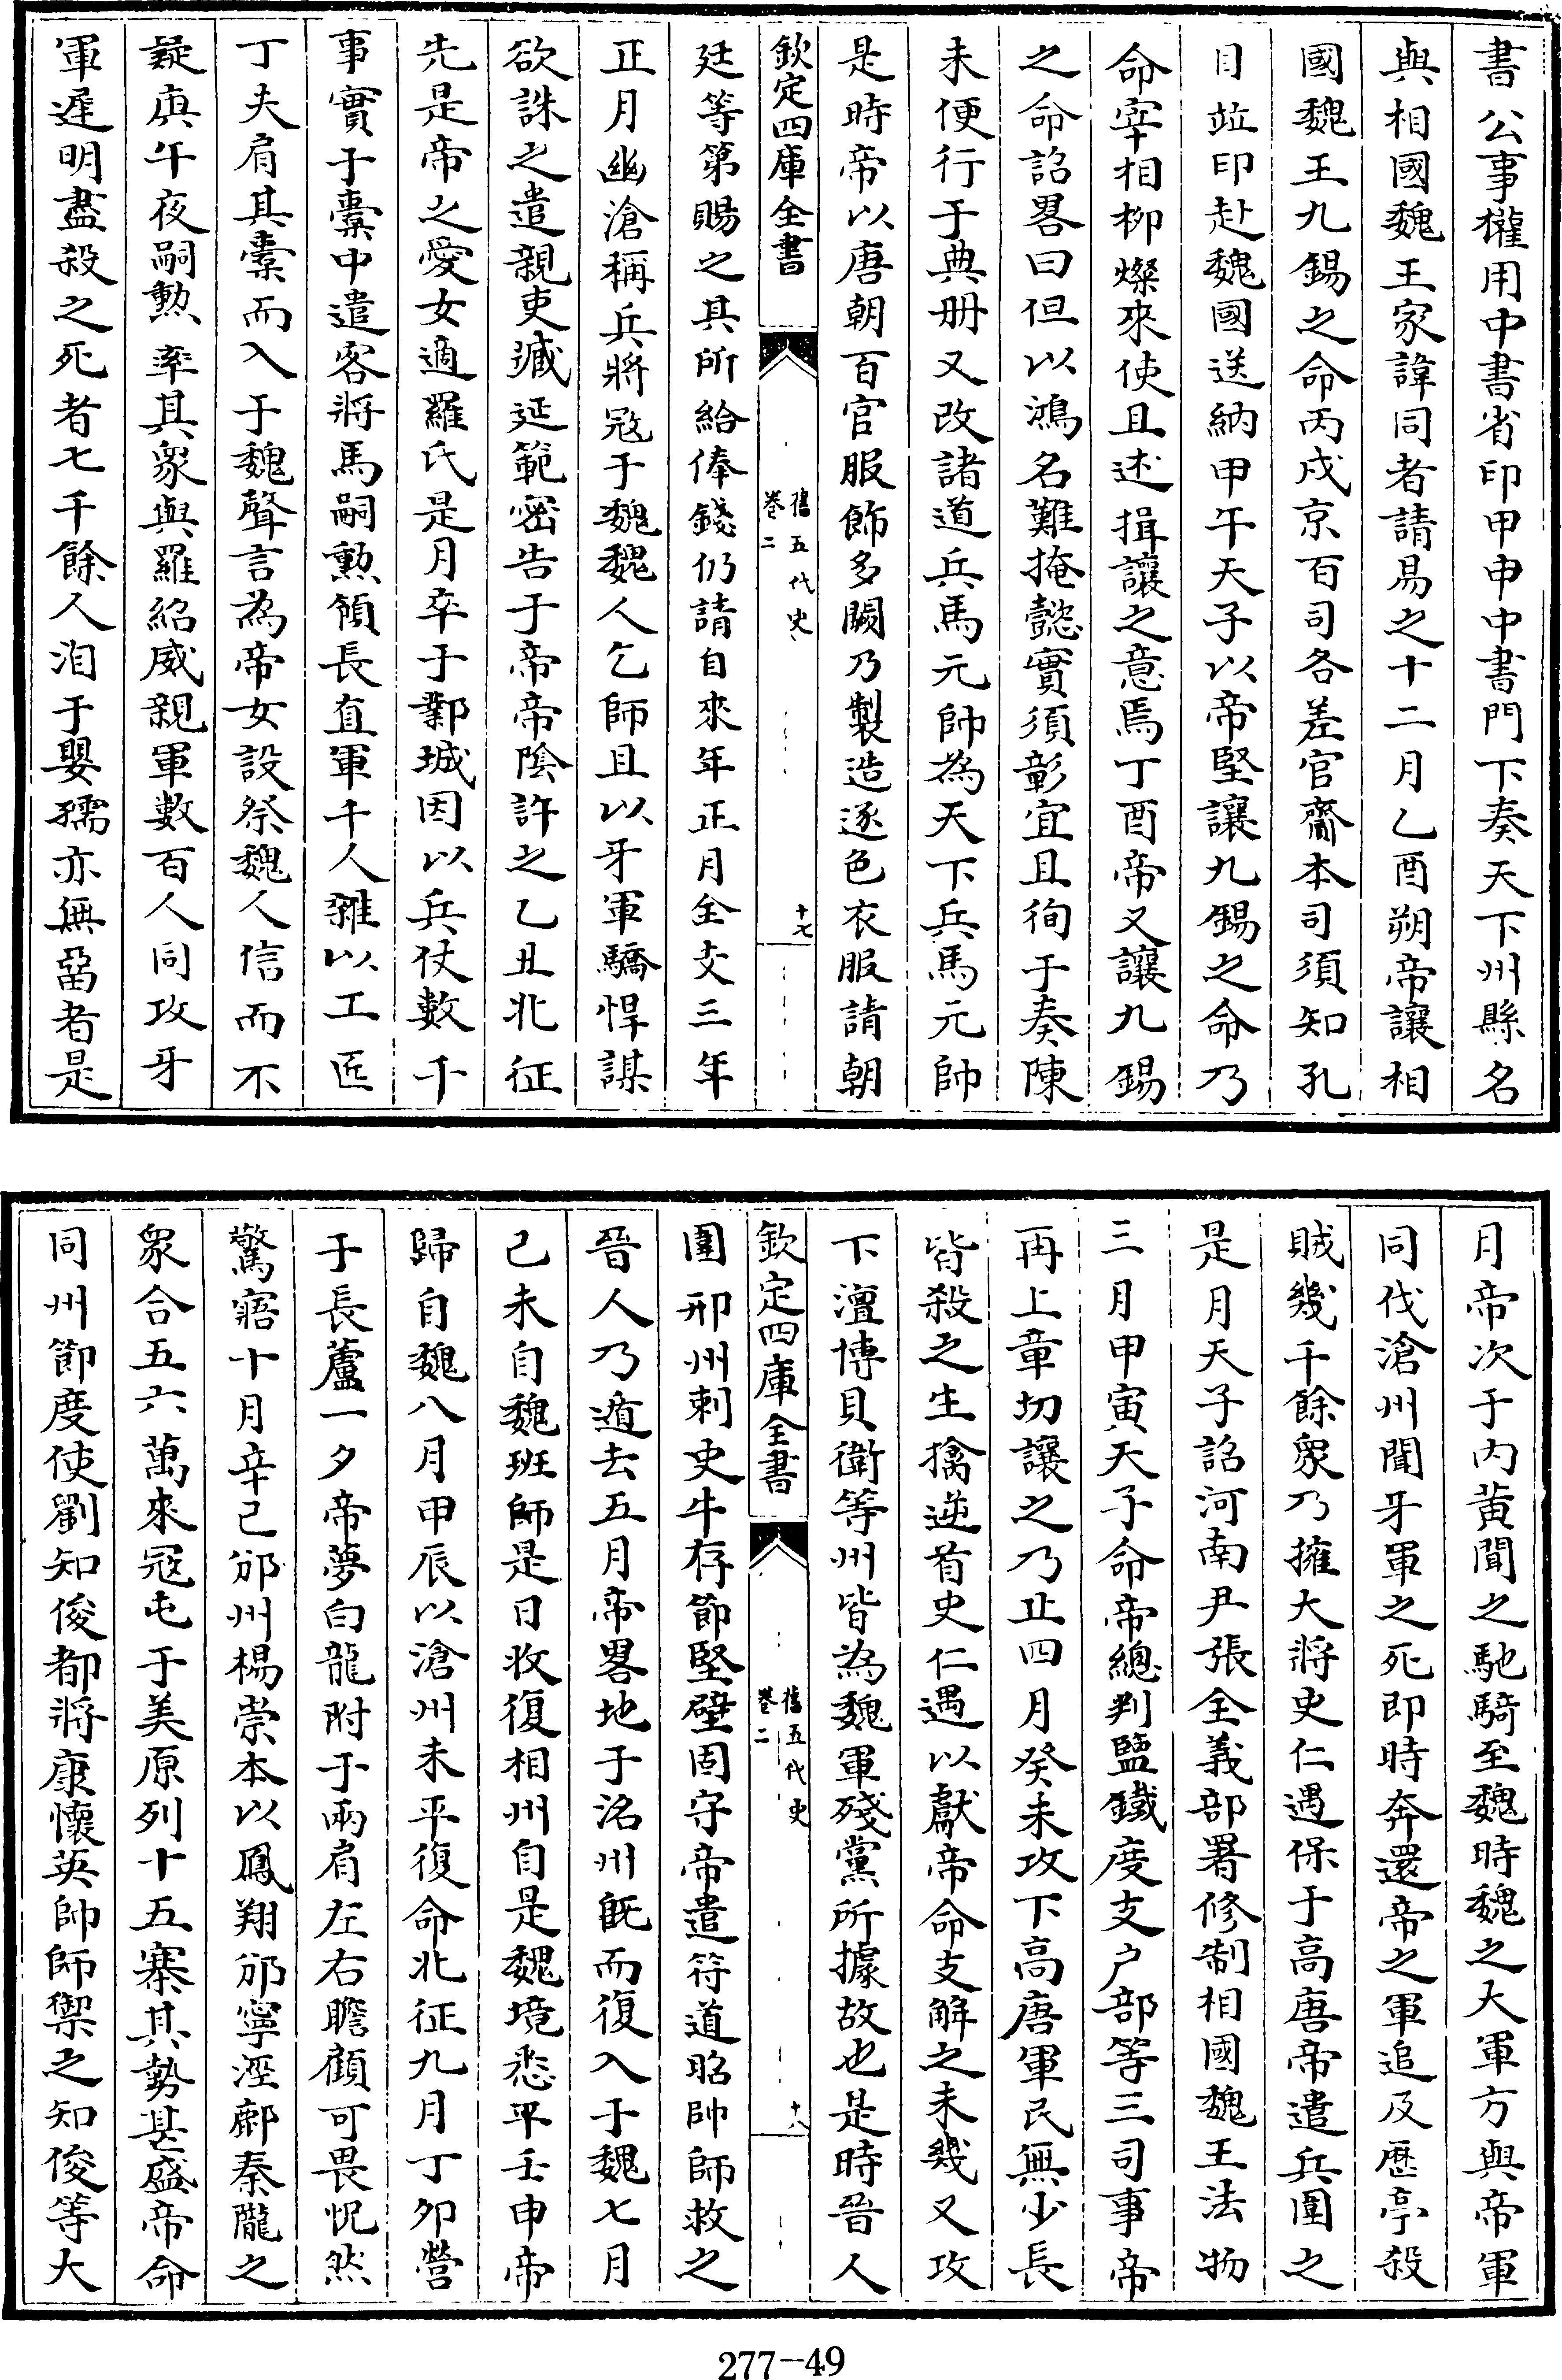 書公事權用中書省印甲申中書門下奏天下州縣名
與相國魏王家諱同者請易之十二月乙酉朔帝讓相
國魏王九錫之命丙戌京百司各差官齎本司須知孔
目竝印赴魏國送納甲午天子以帝堅讓九錫之命乃
命宰相柳燦來使且述揖讓之意焉丁酉帝又讓九錫
之命詔畧曰但以鴻名難掩懿實須彰宜且徇于奏陳
未便行于典册又改諸道兵馬元帥為天下兵馬元帥
是時帝以唐朝百官服飾多闕乃製造逐色衣服請朝
欽定四庫全書
舊五代史
卷二
十七
廷等第賜之其所給俸錢仍請自來年正月全支三年
正月幽滄稱兵將冦于魏魏人乞師且以牙軍驕悍謀
欲誅之遣親吏臧延範密告于帝帝陰許之乙丑北征
先是帝之愛女適羅氏是月卒于鄴城因以兵仗數千
事實于橐中遣客將馬嗣勲領長直軍千人雜以工匠
丁夫肩其橐而入于魏聲言為帝女設祭魏人信而不
疑庚午夜嗣勲率其衆與羅紹威親軍數百人同攻牙
軍遲明盡殺之死者七千餘人洎于嬰孺亦無留者是
月帝次于内黄聞之馳騎至魏時魏之大軍方與帝軍
同伐滄州聞牙軍之死即時奔還帝之軍追及歴亭殺
賊幾千餘衆乃擁大將史仁遇保于高唐帝遣兵圍之
是月天子詔河南尹張全義部署修制相國魏王法物
三月甲寅天子命帝總判鹽鐵度支户部等三司事帝
再上章切讓之乃止四月癸未攻下高唐軍民無少長
皆殺之生擒逆首史仁遇以獻帝命支解之未幾又攻
下澶博貝衛等州皆為魏軍殘黨所據故也是時晉人
欽定四庫全書
舊五代史
卷二
十八
圍邢州刺史牛存節堅壁固守帝遣符道昭帥師救之
晉人乃遁去五月帝畧地于洺州既而復入于魏七月
己未自魏班師是日收復相州自是魏境悉平壬申帝
歸自魏八月甲辰以滄州未平復命北征九月丁卯營
于長蘆一夕帝夢白龍附于兩肩左右瞻顧可畏怳然
驚寤十月辛己邠州楊崇本以鳳翔邠寧涇鄜秦隴之
衆合五六萬來冦屯于美原列十五寨其勢甚盛帝命
同州節度使劉知俊都將康懷英帥師禦之知俊等大
277-49